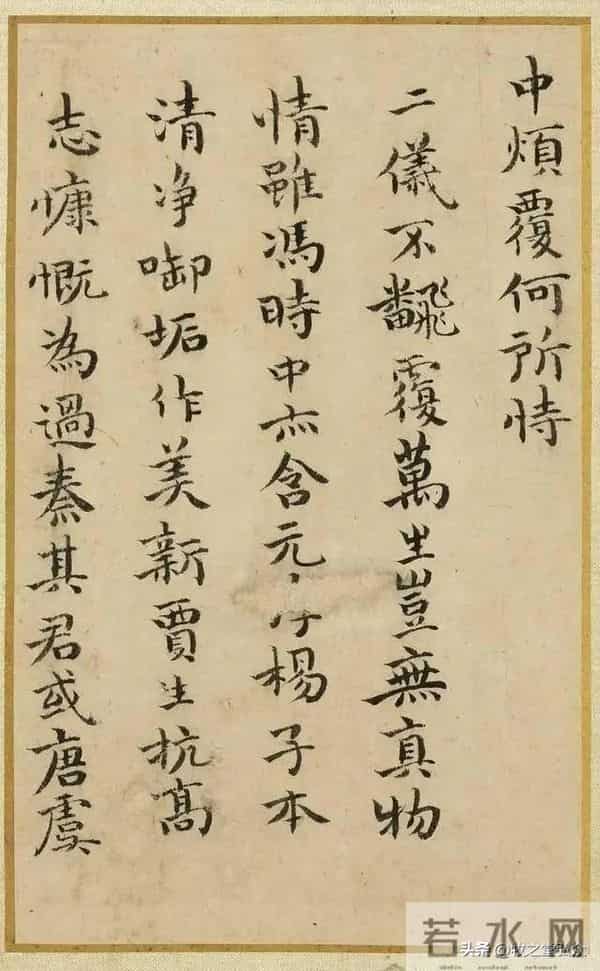 中煩覆何所恃
二儀不飜覆萬生豈無真物
情雖馮時中亦含元楊子本
清净啣垢作美新賈生抗高
志慷慨為過秦其君或唐虞
若水网
头条